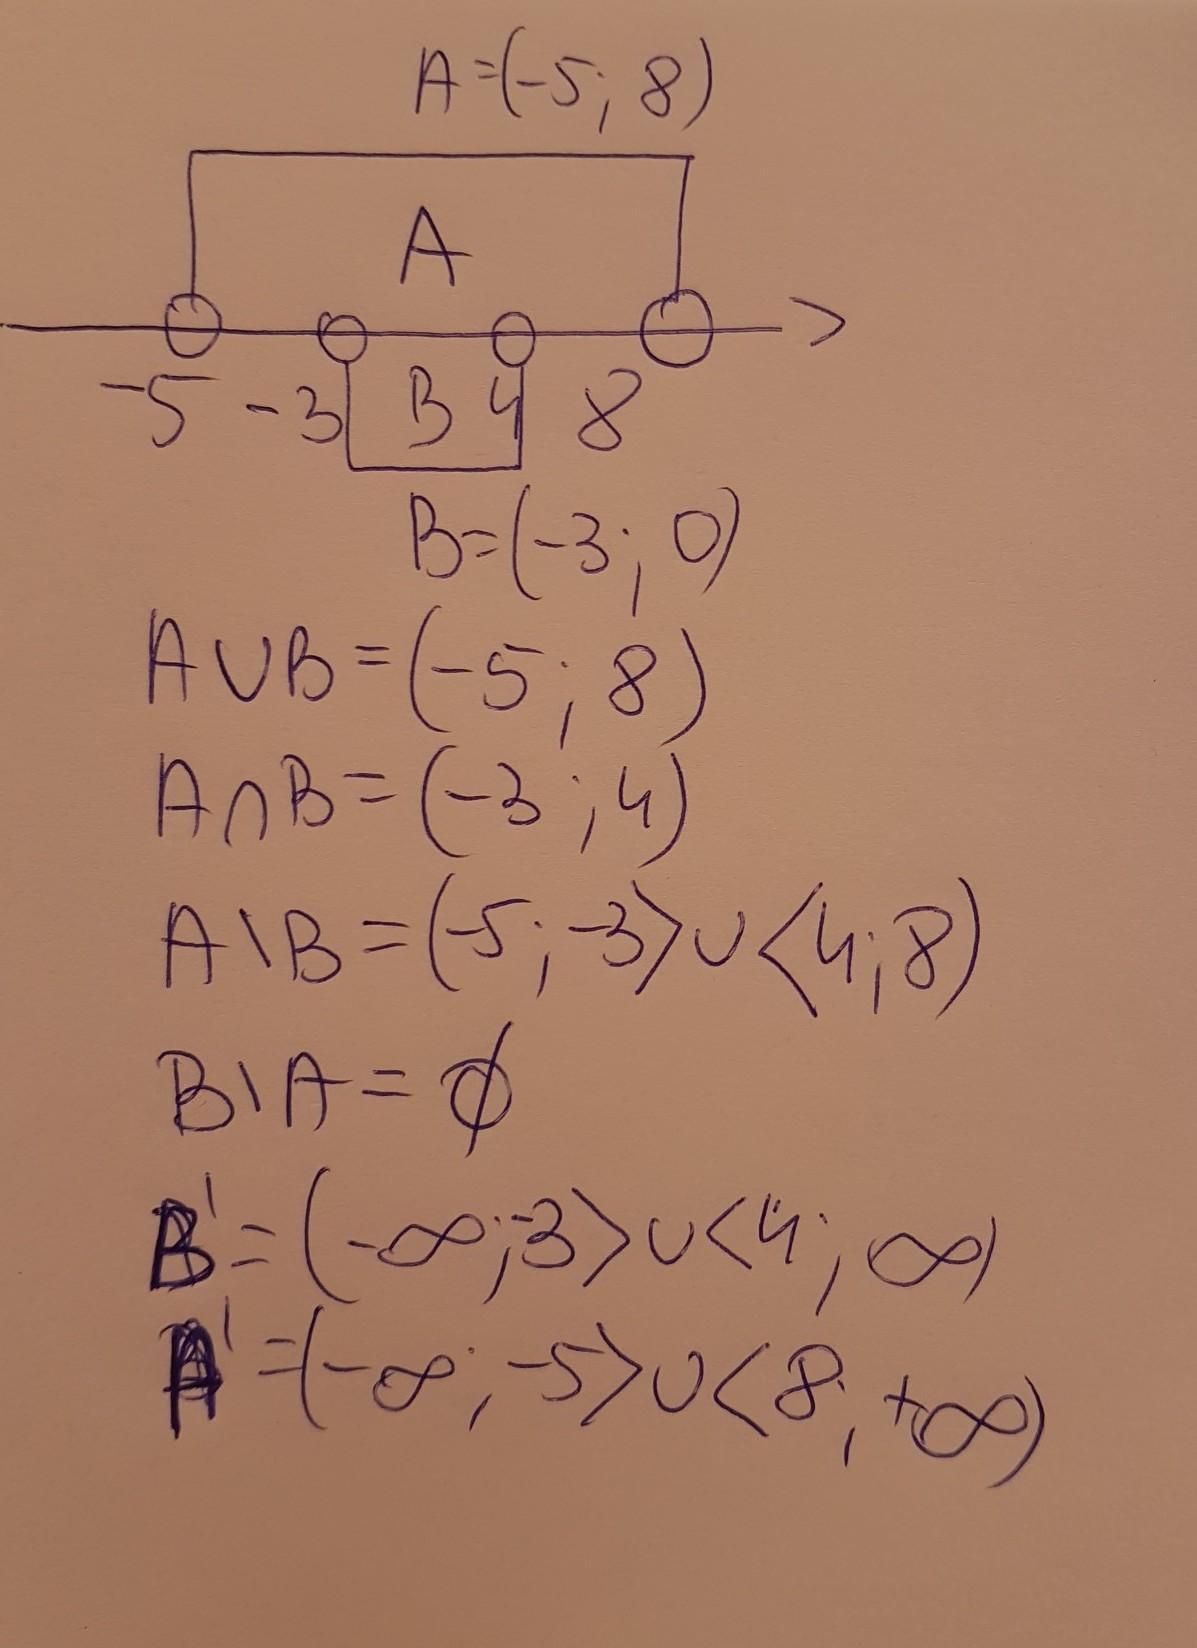 A=(-5; 8)
A
-5 -3 B 4 8
B=(-3; 0)
A∪B=(-5; 8)
A∩B=(-3; 4)
A\B=(-5; -3>∪<4; 8)
B\A=∅
B'=(-∞; -3>∪<4; ∞)
A'=(-∞; -5>∪<8; +∞)